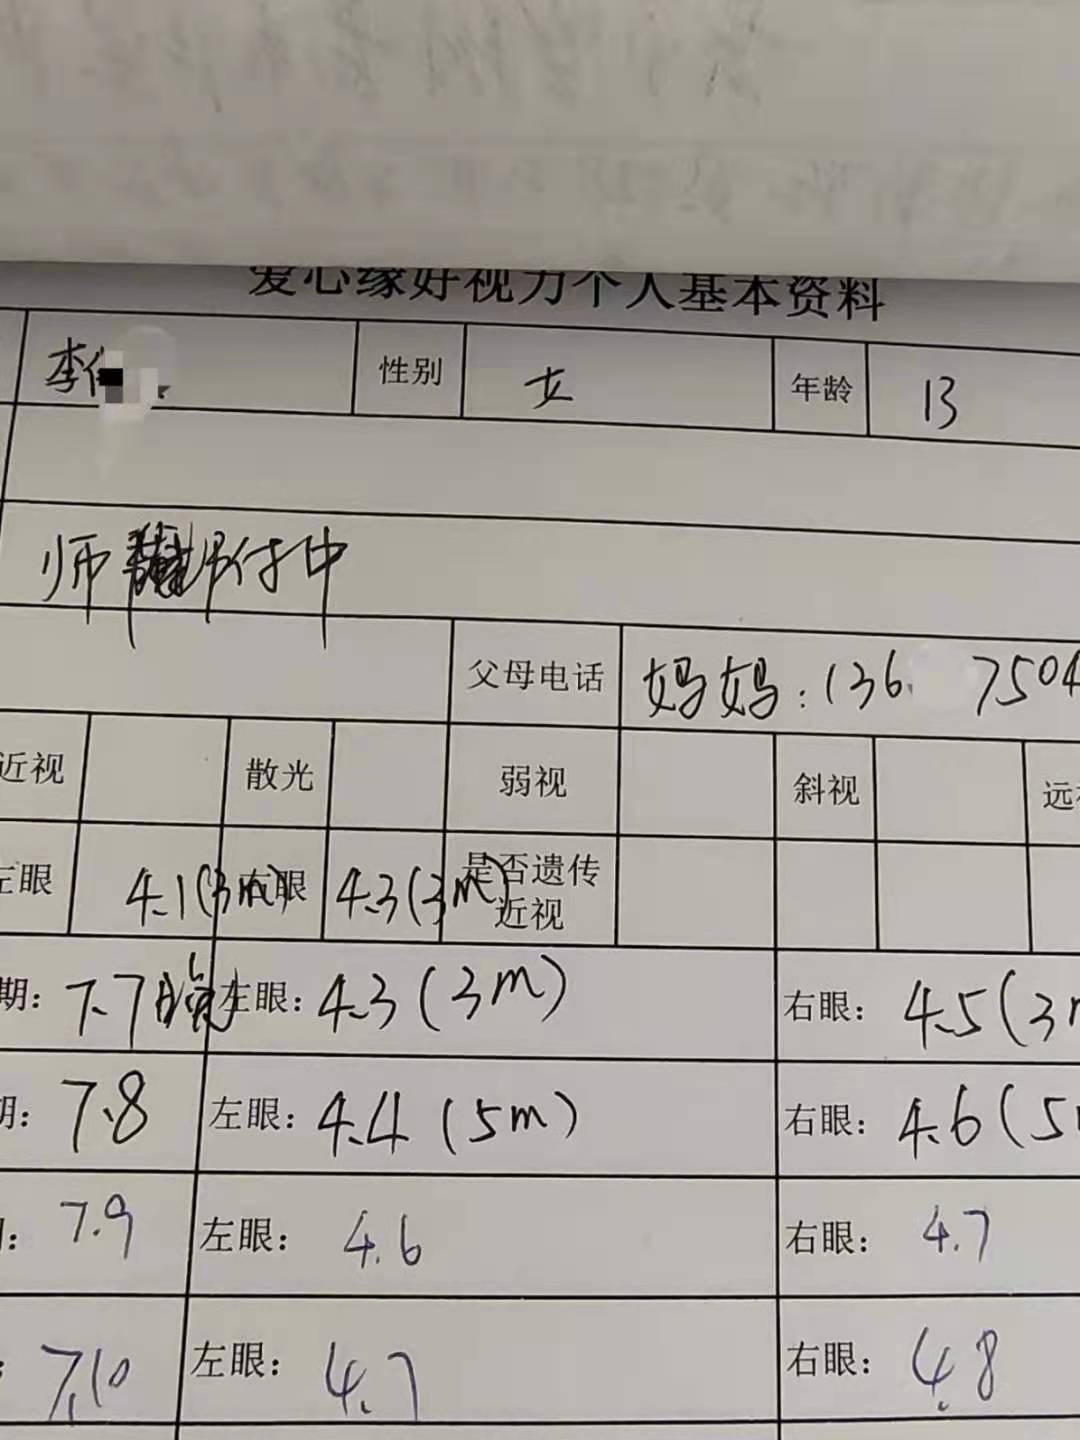 爱心缘好视力个人基本资料
李 性别 女 年龄 13
师 附中
父母电话 妈妈:136 7504
近视 散光 弱视 斜视
左眼 4.1(3m) 右眼 4.3(3m) 是否遗传近视
期: 7.7 左眼: 4.3(3m) 右眼: 4.5(3m
期: 7.8 左眼: 4.4(5m) 右眼: 4.6(5
: 7.9 左眼: 4.6 右眼: 4.7
: 7.10 左眼: 4.7 右眼: 4.8